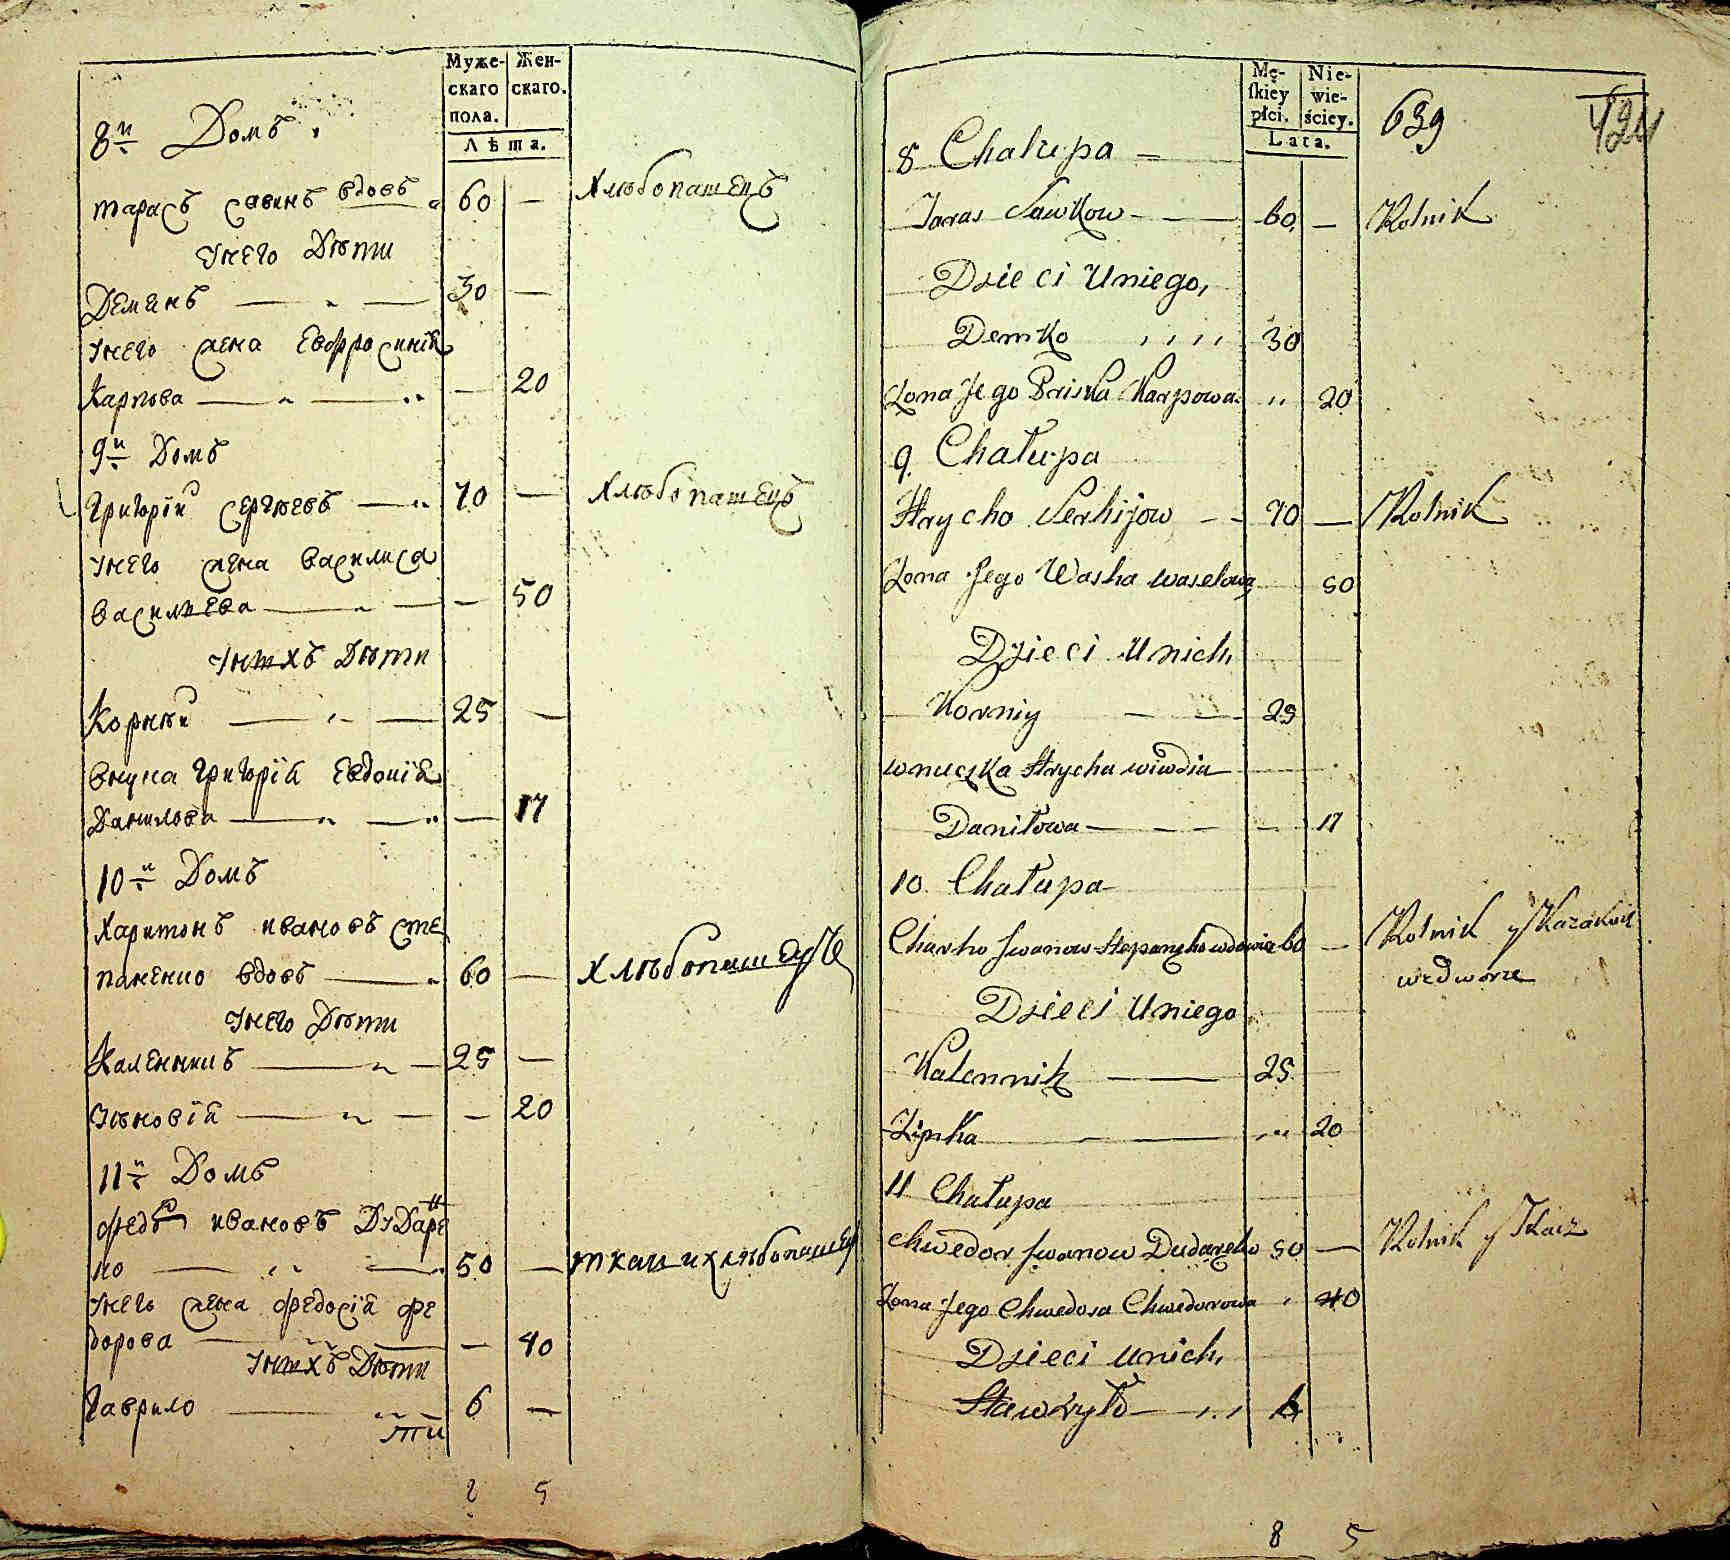 Муже-
скаго
пола.
Жен-
скаго.
Лѣта.
8й Домъ
Тарасъ Савинъ вдовъ 60 — Хлѣбопашецъ
Унего Дѣти
Деманъ — 30 —
Унего жена Евфросинія
Карпова — — 20
9й Домъ
Григорій Сергѣевъ — 70 — Хлѣбопашецъ
Унего жена Василиса
Васильева — — 50
Унихъ Дѣти
Корнѣй — 25 —
Внука Григорія Евдокія
Данилова — — 17
10й Домъ
Харитонъ Ивановъ Сте
паненко вдовъ — 60 — Хлѣбопашецъ
Унего Дѣти
Каленникъ — 25 —
Зѣновія — — 20
11й Домъ
Федоръ Ивановъ Дударен
ко — 50 — ткач и хлѣбопашец
Унего жена Федосія Фе
дорова — — 40
Унихъ Дѣти
Гаврило — 6 —
8 5
Mę-
skiey
płci.
Nie-
wie-
ściey.
Lata.
639
424
8 Chałupa —
Taras Sawkow — 60 — Rolnik
Dzieci Uniego,
Demko 30
Zona Jego Priska Karpowa 20
9. Chałupa
Hrycho Serhijow — 70 — Rolnik
Zona Jego Washa Waselowa 50
Dzieci Unich,
Korniy — 25
wnuczka Hrycha wiwdia
Daniłowa — — 17
10. Chałupa
Charko Jwanow Stepanenko wdowiec 60 — Rolnik y Kazakuie
wedworze
Dzieci Uniego
Kalennik — 25
Zinka — 20
11 Chałupa
Chwedor Jwanow Dudarenko 50 — Rolnik y Tkacz
Zona Jego Chwedosa Chwedorowa 40
Dzieci Unich,
Hawryło — 6
8 5